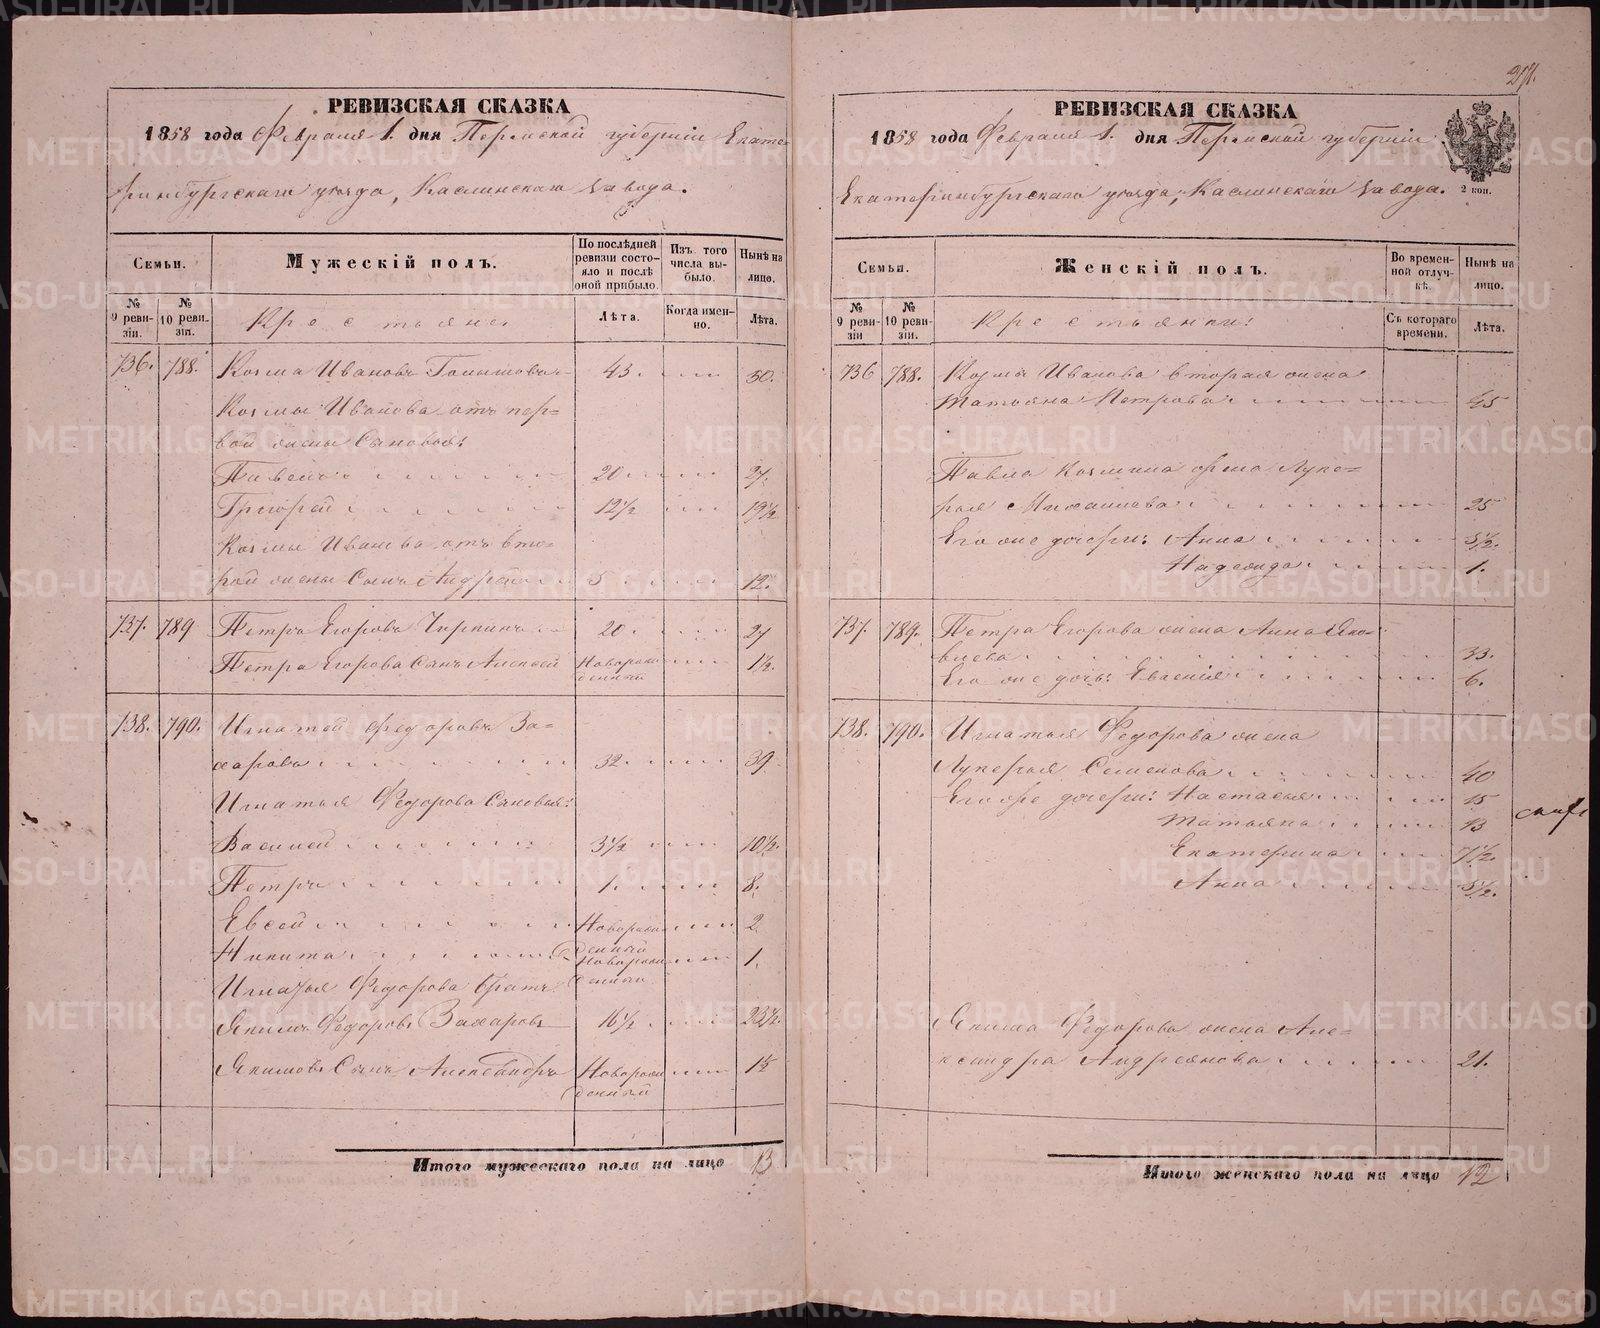 РЕВИЗСКАЯ СКАЗКА
1858 года Февраля 1. дня Пермской губернии Екате-
ринбургскаго уезда, Каслинскаго завода.
Семьи.
Мужескій полъ.
По послѣдней ревизіи состояло и послѣ оной прибыло.
Изъ того числа выбыло.
Нынѣ на лицо.
№ 9 ревизіи.
№ 10 ревизіи.
Крестьяне:
Лѣта.
Когда именно.
Лѣта.
736. 788. Козма Ивановъ 43. 50.
Козмы Иванова отъ пер=
вой жены Сыновья:
Павелъ 20 27.
Григорей 12½ 19½
Козмы Иванова отъ вто=
рой жены Сынъ Андрей 5 12.
737. 789 Петръ Егоровъ 20 27
Петра Егорова Сынъ Алексей Новорожденный 1½.
738. 790. Игнатей Федоровъ За=
харовъ 32. 39
Игнатья Федорова Сыновья:
Василей 3½ 10½.
Петръ 1. 8.
Евсей Новорожденный 2
Никита Новорожденный 1.
Игнатья Федорова братъ
Якимъ Федоровъ Захаровъ 16½ 23½.
Якимовъ Сынъ Александръ Новорожденный 1½
Итого мужескаго пола на лицо 13
РЕВИЗСКАЯ СКАЗКА
1858 года Февраля 1. дня Пермской губерніи
Екатеринбургскаго уезда, Каслинскаго завода.
2 коп.
Семьи.
Женскій полъ.
Во временной отлучкѣ.
Нынѣ на лицо.
№ 9 ревизіи
№ 10 ревизіи.
Крестьянки:
Съ котораго времени.
Лѣта.
736 788. Козмы Иванова вторая жена
Татьяна Петрова 45
Павла Козмина жена Луке=
рья Михайлова 25
Его же дочери: Анна 5½.
Надежда 1.
737. 789. Петра Егорова жена Анна Яко=
влева 33.
Его же дочь: Евгенія 6.
738. 790. Игнатья Федорова жена
Лукерья Семенова 40
Его же дочери: Настасья 15
Татьяна 13
Екатерина 7½.
Анна 5½.
Якима Федорова жена Але=
ксандра Андреянова 21.
Итого женскаго пола на лицо 12
METRIKI.GASO-URAL.RU